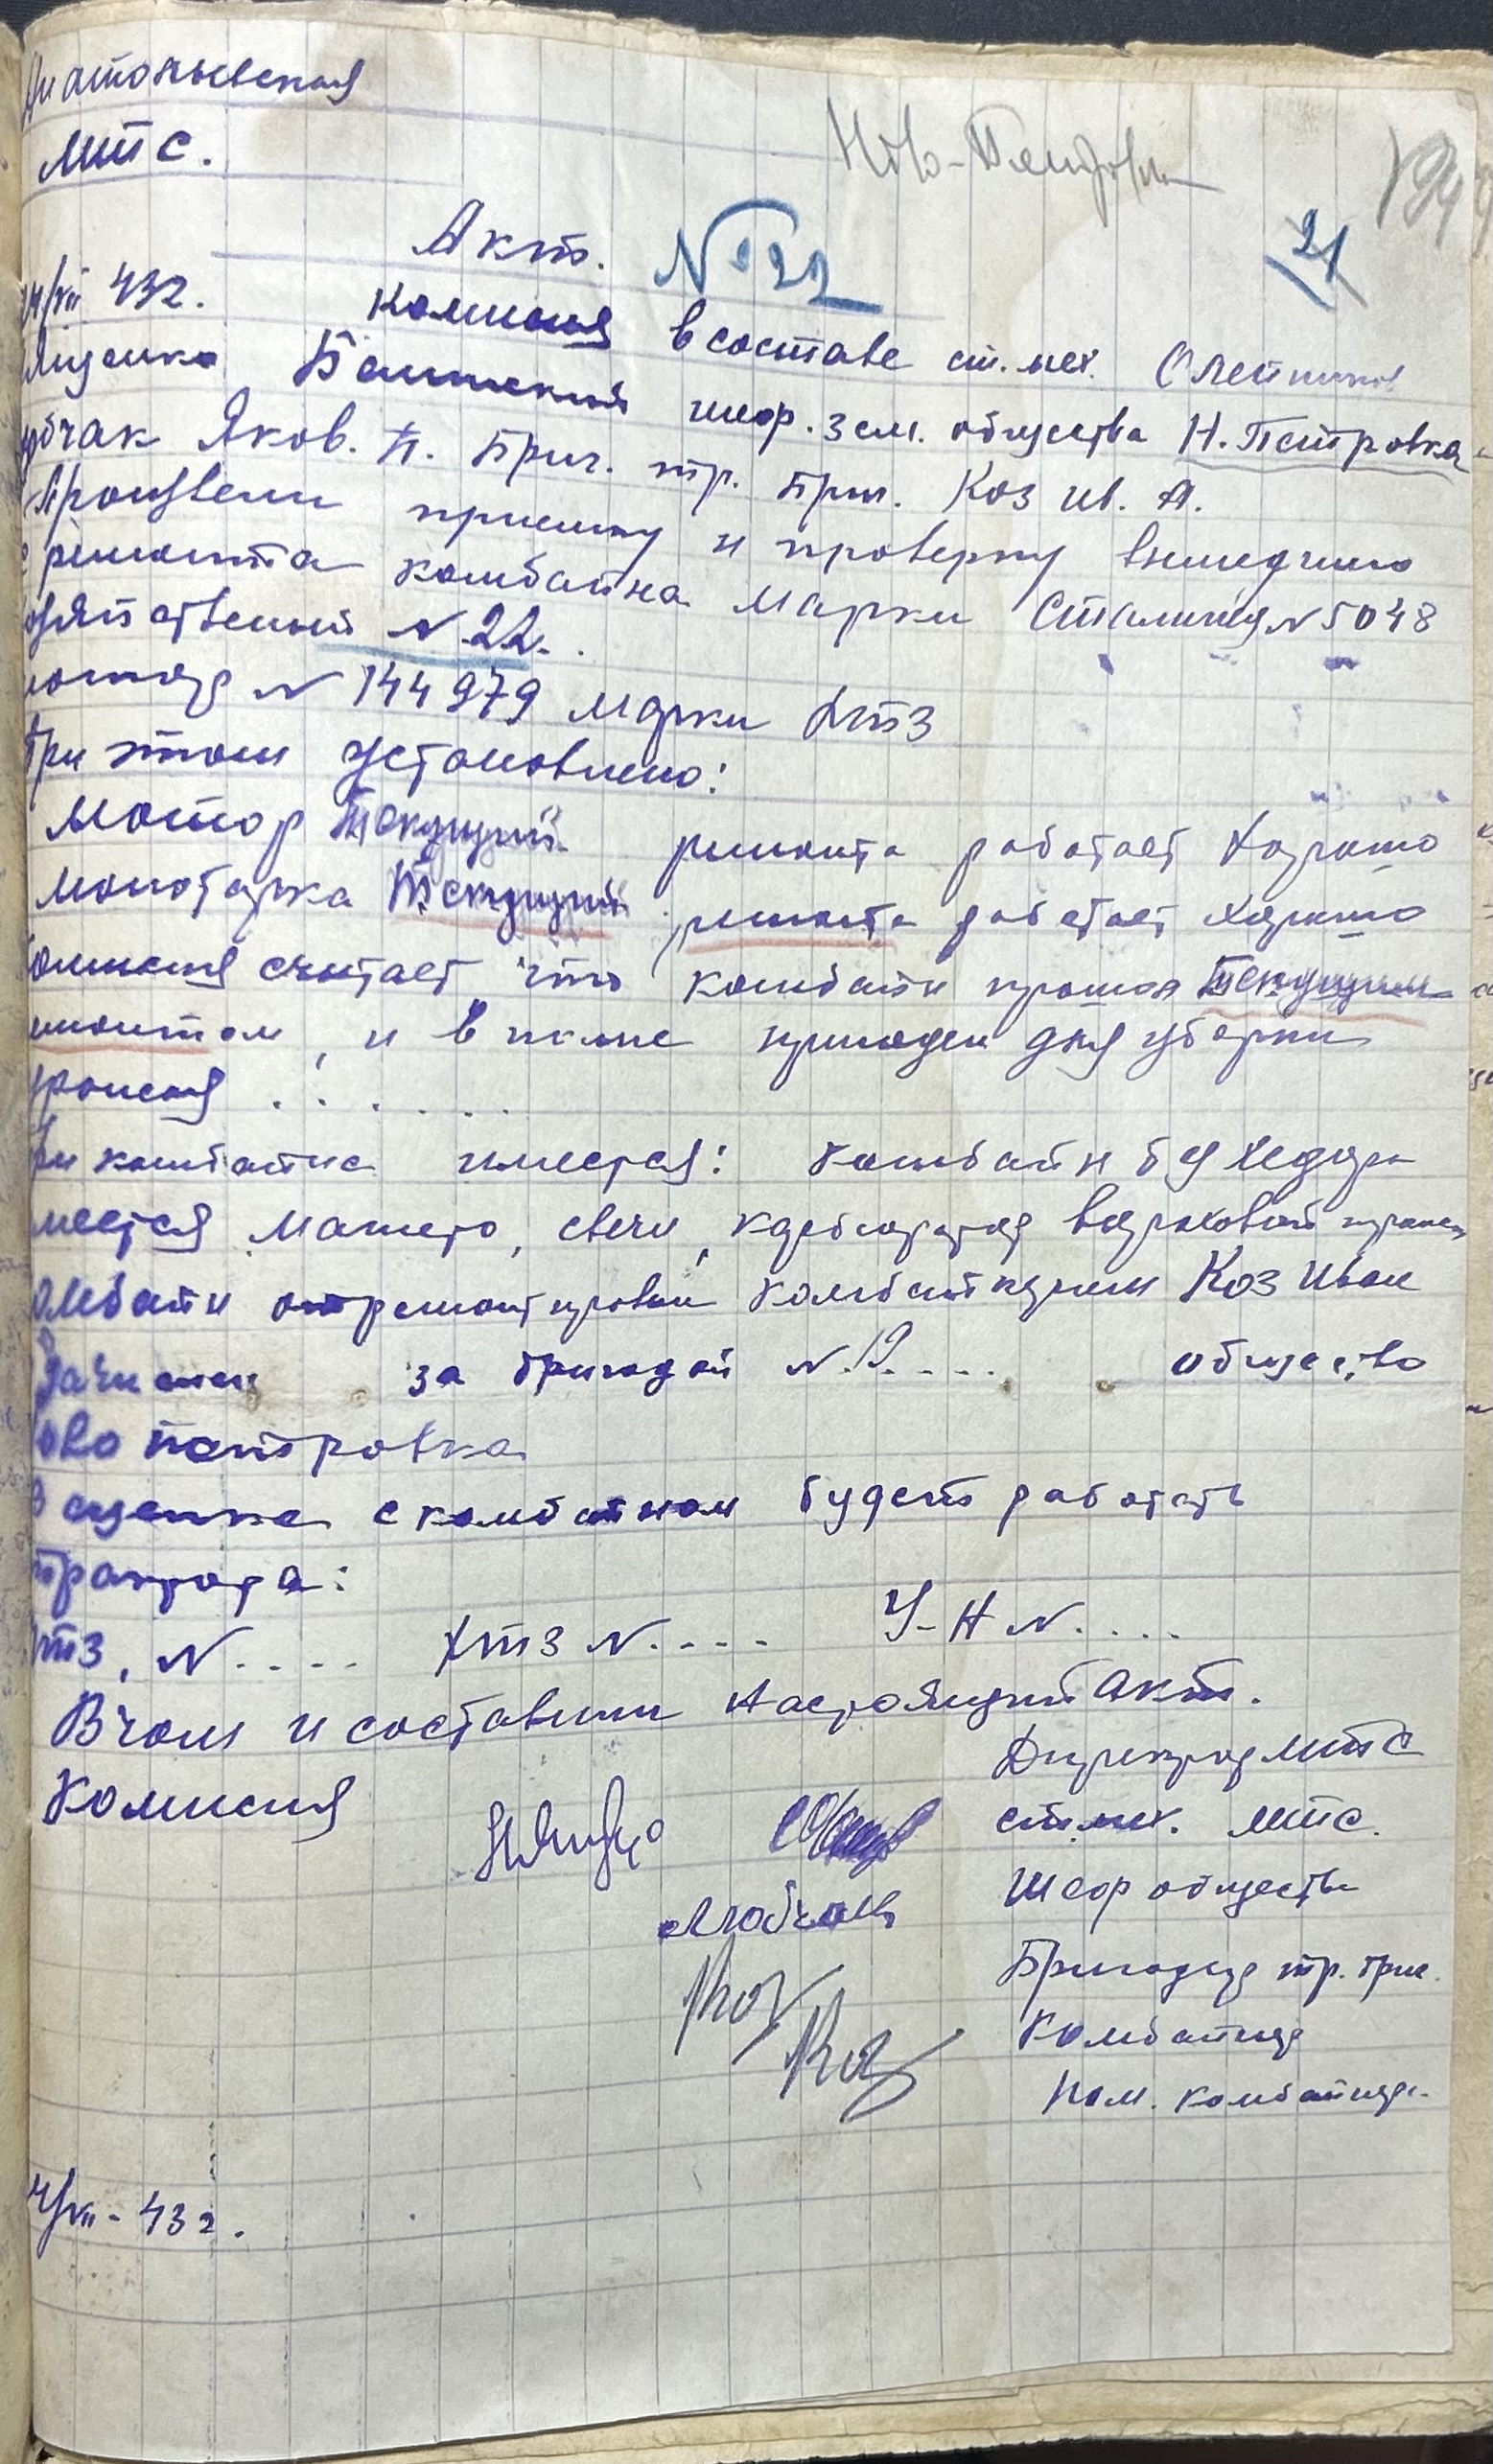 Анатольевская
МТС.
Ново-Петровка
21
Акт. №22
Комисия в составе ст. мех. Олейников
Яценко шеф. зем. общества Н. Петровка
Яков. П. Бриг. тр. бриг. Коз Ив. А.
Произвели приемку и проверку вышедшего
с ремонта комбайна марки Сталинец N 5048
хозяйственный N 22.
мотор N 144979 марки ХТЗ
При этом установлено:
Мотор Текущий ремонта работает хорошо
Молотарка Текущий ремонта работает хорошо
Комисия считает что комбайн прошел Текущим
ремонтом, и в поле пригоден для уборки
урожая . . . . . .
При комбайне имеется: комбайн без хедера
имеется магнето, свечи, карбюратор
комбайн отремонтирован комбайнером Коз Иван
за бригадой N. 19.... общество
Ново Петровка
В сцепке с комбайном будет работать
трактора:
ХТЗ, N.... ХТЗ N.... У-Н N....
В чом и составили настоящий акт.
Комисия
Директор МТС
ст. мех. МТС.
Шеф общества
Бригадир тр. бриг.
Комбайнер
Пом. комбайнера
Коз
Коз